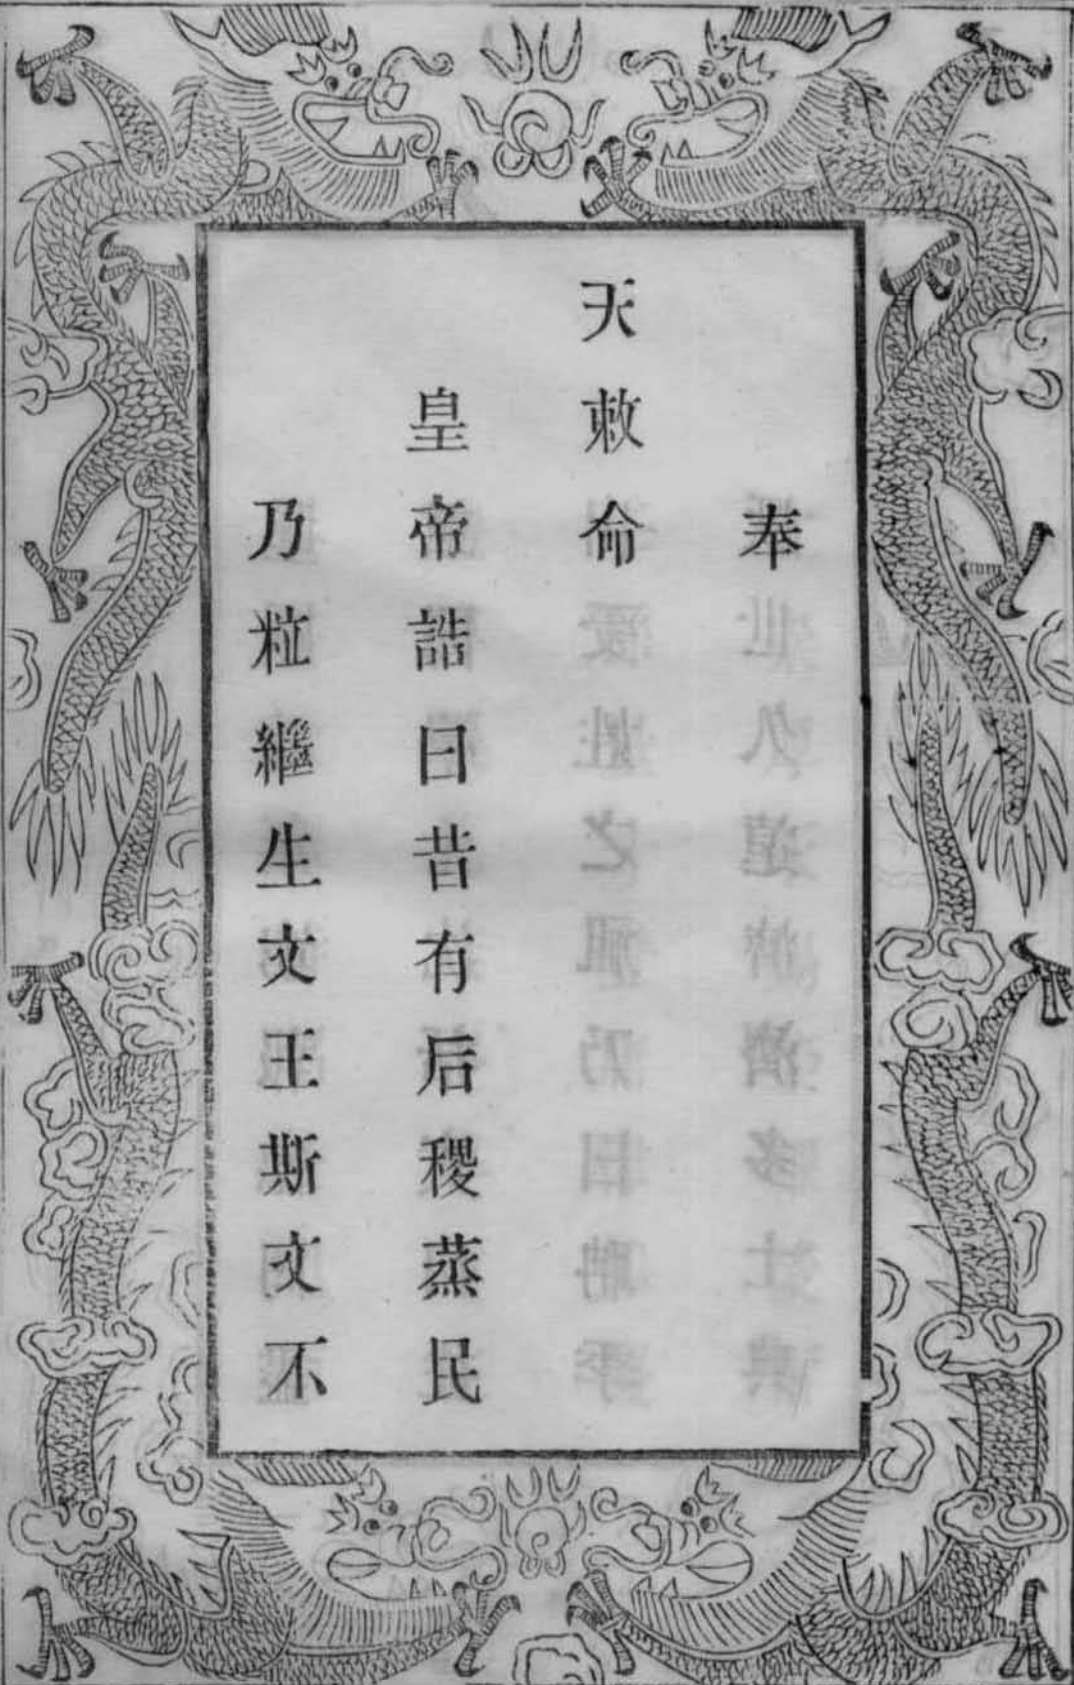 奉
天敕命
皇帝誥曰昔有后稷蒸民
乃粒繼生文王斯文不